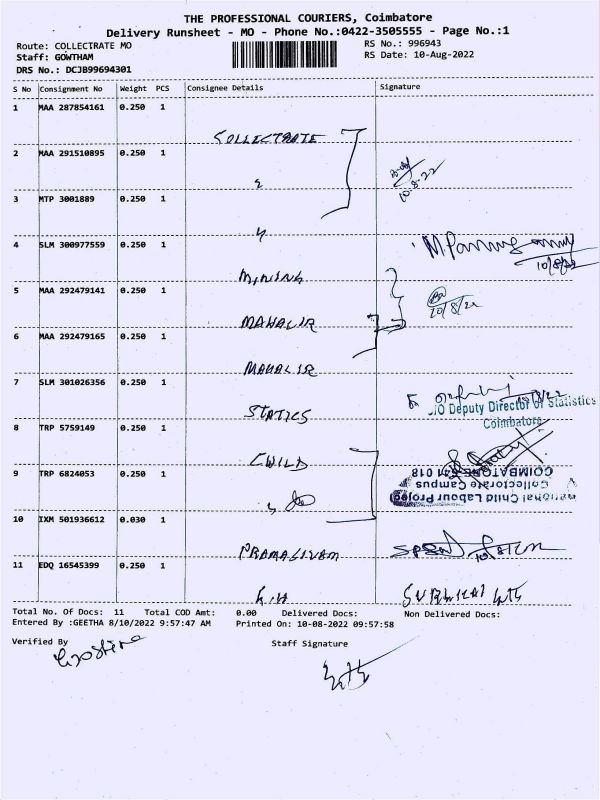 THE PROFESSIONAL COURIERS, Coimbatore
Delivery Runsheet - MO - Phone No.:0422-3505555 - Page No.:1
Route: COLLECTRATE MO
RS No.: 996943
Staff: GOWTHAM
RS Date: 10-Aug-2022
DRS No.: DCJB99694301
S No Consignment No Weight PCS Consignee Details Signature
1 MAA 287854161 0.250 1
COLLECTRATE
2 MAA 291510895 0.250 1
10-8-22
3 MTP 3001889 0.250 1
4 SLM 300977559 0.250 1
10/8/22
MINING
5 MAA 292479141 0.250 1
10/8/22
MAHALIR
6 MAA 292479165 0.250 1
MAHALIR
7 SLM 301026356 0.250 1
O/O Deputy Director of Statistics
STATICS
Coimbatore
8 TRP 5759149 0.250 1
CHILD
9 TRP 6824053 0.250 1
National Child Labour Project
Collectorate Campus
COIMBATORE-641 018
10 IXM 501936612 0.030 1
PRAMASIVAM
11 EDQ 16545399 0.250 1
Total No. Of Docs: 11 Total COD Amt: 0.00 Delivered Docs: Non Delivered Docs:
Entered By :GEETHA 8/10/2022 9:57:47 AM Printed On: 10-08-2022 09:57:58
Verified By
Staff Signature